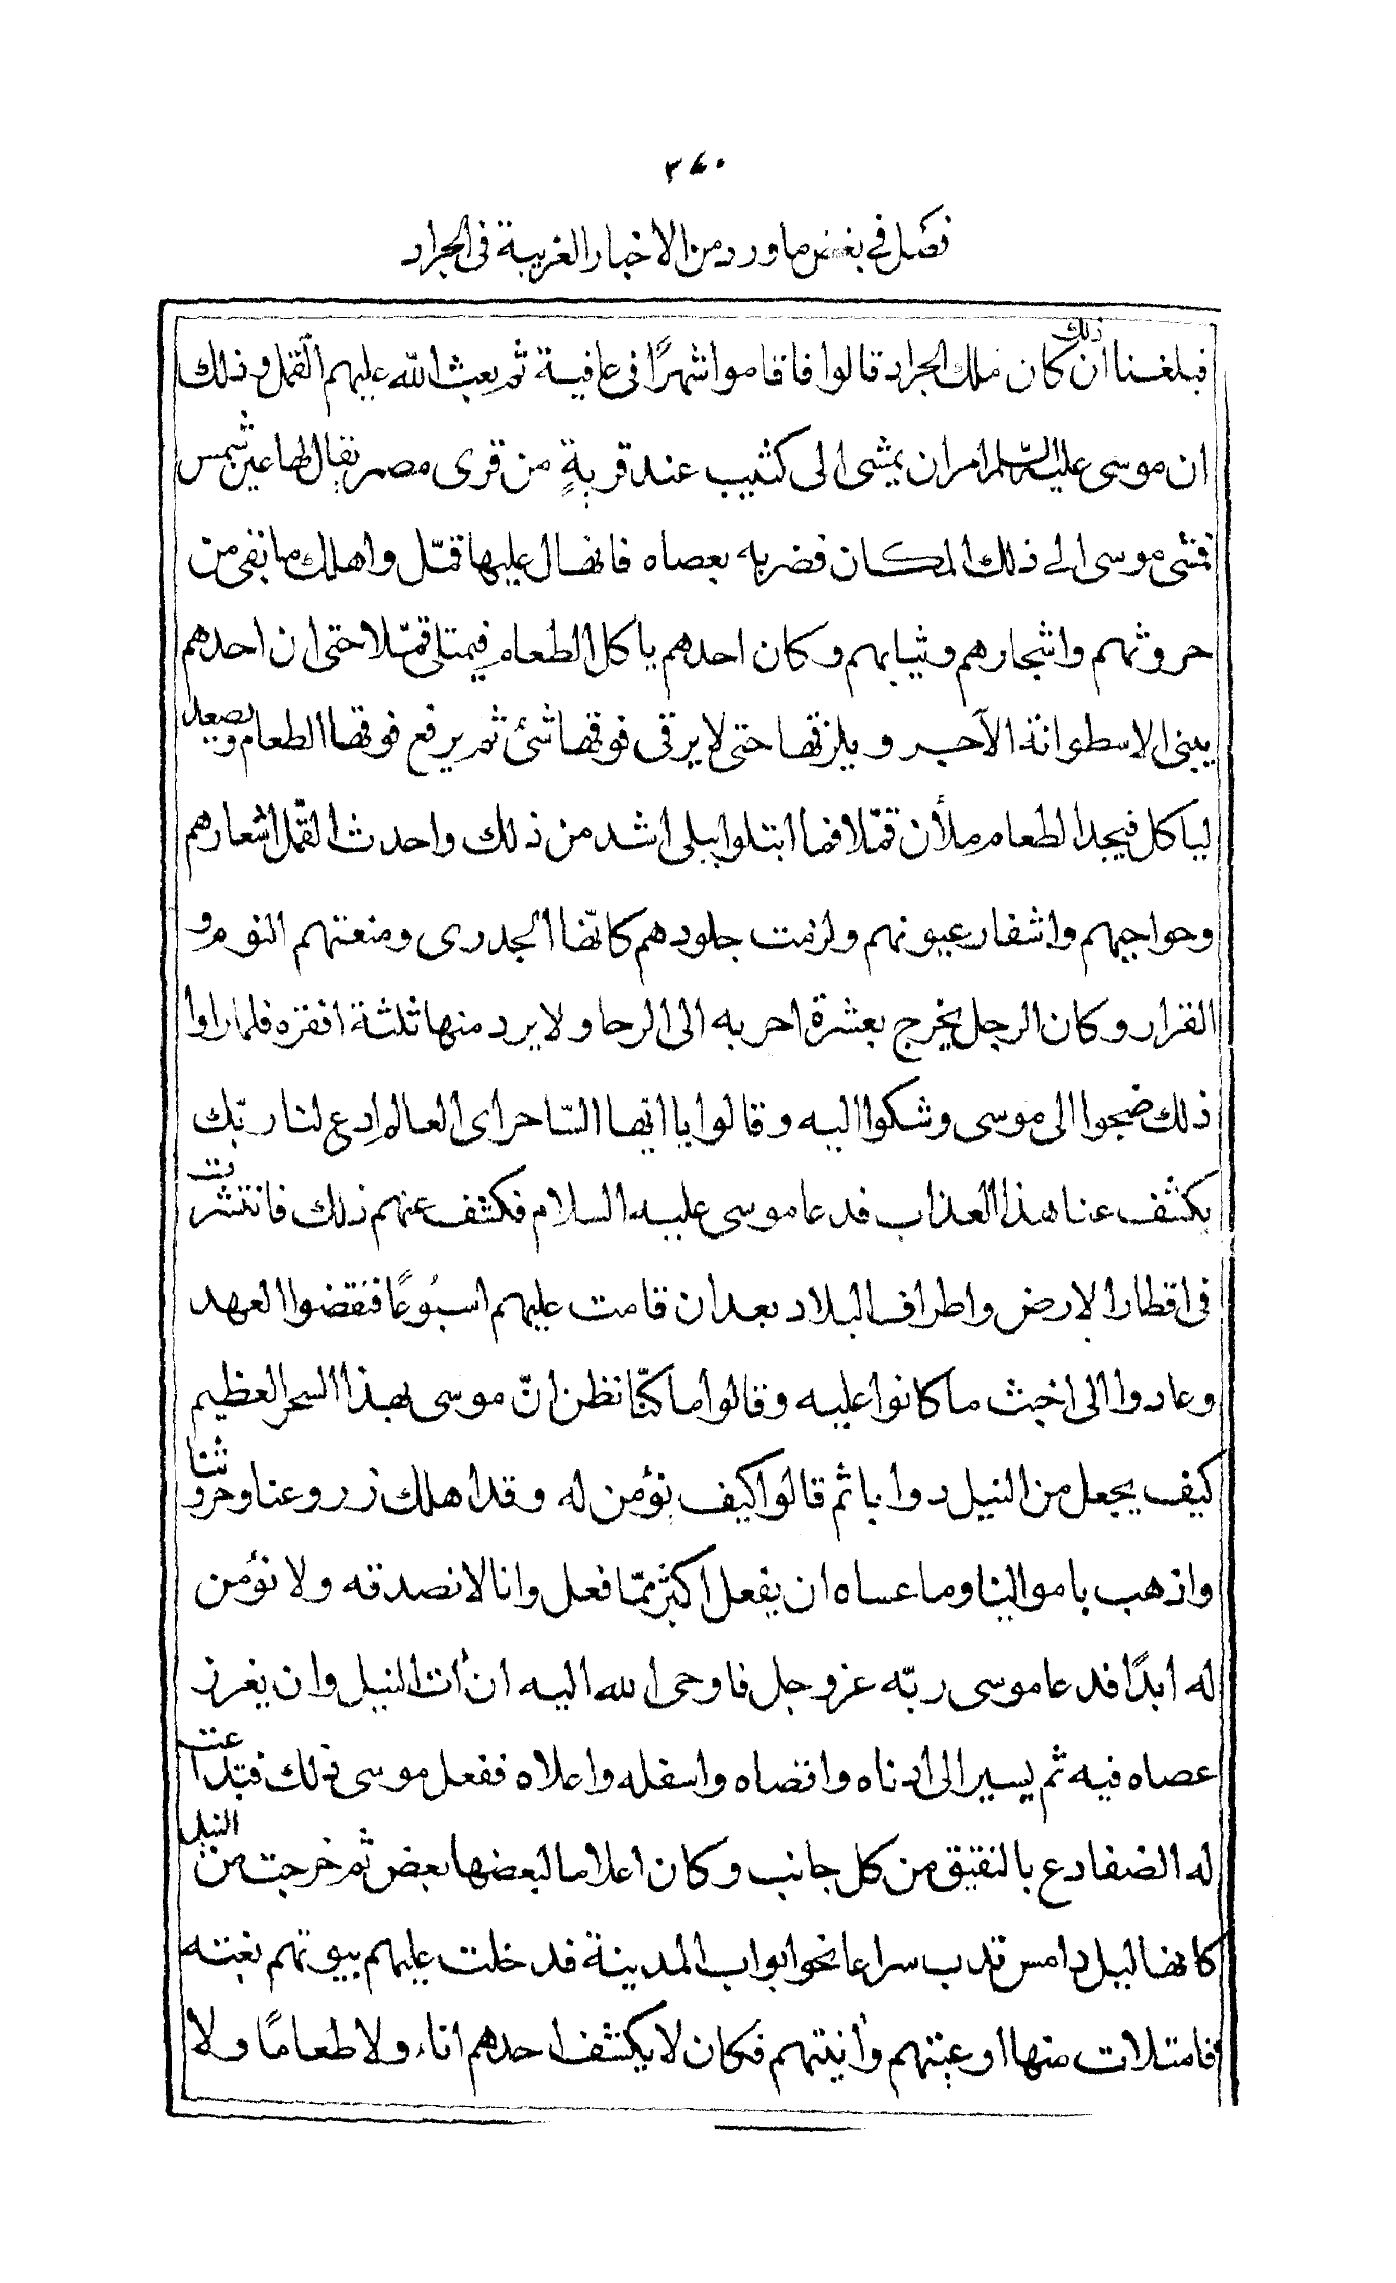 ٣٤٠
فصل في بعض ما ورد من الاخبار الغريبة في الجراد
فبلغنا ان ذلك كان ملك الجراد قالوا فاقاموا شهرًا في عافية ثم بعث الله عليهم القمل وذلك
ان موسى عليه السّلم امر ان يمشى الى كثيب عند قريةٍ من قرى مصر يقال لها عين شمس
فمشى موسى الى ذلك المكان فضربه بعصاه فانهال عليها قمّل واهلك ما بقى من
حروثهم واشجارهم وثيابهم وكان احدهم ياكل الطعام فيمتلى قمّلا حتى ان احدهم
يبنى الاسطوانة الآجر ويلزقها حتى لا يرقى فوقها شئ ثم يرفع فوقها الطعام ويصعد
لياكل فيجد الطعام ملأن قمّلا فما ابتلوا ببلى اشد من ذلك واحدث القمّل اشعارهم
وحواجبهم واشفار عيونهم ولزمت جلودهم كانّها الجدرى ومنعتهم النوم و
القرار وكان الرجل يخرج بعشرة اجربه الى الرحا ولا يرد منها ثلثة اقفزه فلما راوا
ذلك ضجوا الى موسى وشكوا اليه وقالوا يا ايها السّاحر اى العالم ادع لنا ربّك
يكشف عنا هذا العذاب فدعا موسى عليه السلام فكشف عنهم ذلك فانتشرت
في اقطار الارض واطراف البلاد بعد ان قامت عليهم اسبُوعًا فنقضوا العهد
وعادوا الى اخبث ما كانوا عليه وقالوا ما كنّا نظن انّ موسى بهذا السحر العظيم
كيف يجعل من النيل دوابا ثم قالوا كيف نؤمن له وقد اهلك زروعنا وحروثنا
واذهب باموالينا وما عساه ان يفعل اكثر ممّا فعل وانا لا نصدقه ولا نؤمن
له ابدًا فدعا موسى ربّه عز وجل فاوحى الله اليه ان أت النيل وان يغرز
عصاه فيه ثم يسير الى ادناه واقصاه واسفله واعلاه ففعل موسى ذلك فتداعت
له الضفادع بالنقيق من كل جانب وكان اعلاما لبعضها بعض ثم خرجت من النيل
كانها ليل دامس تدب سراعا نحو ابواب المدينة فدخلت عليهم بيوتهم بغته
فامتلات منها اوعيتهم وأنيتهم فكان لا يكشف احدهم اناء ولا طعامًا ولا